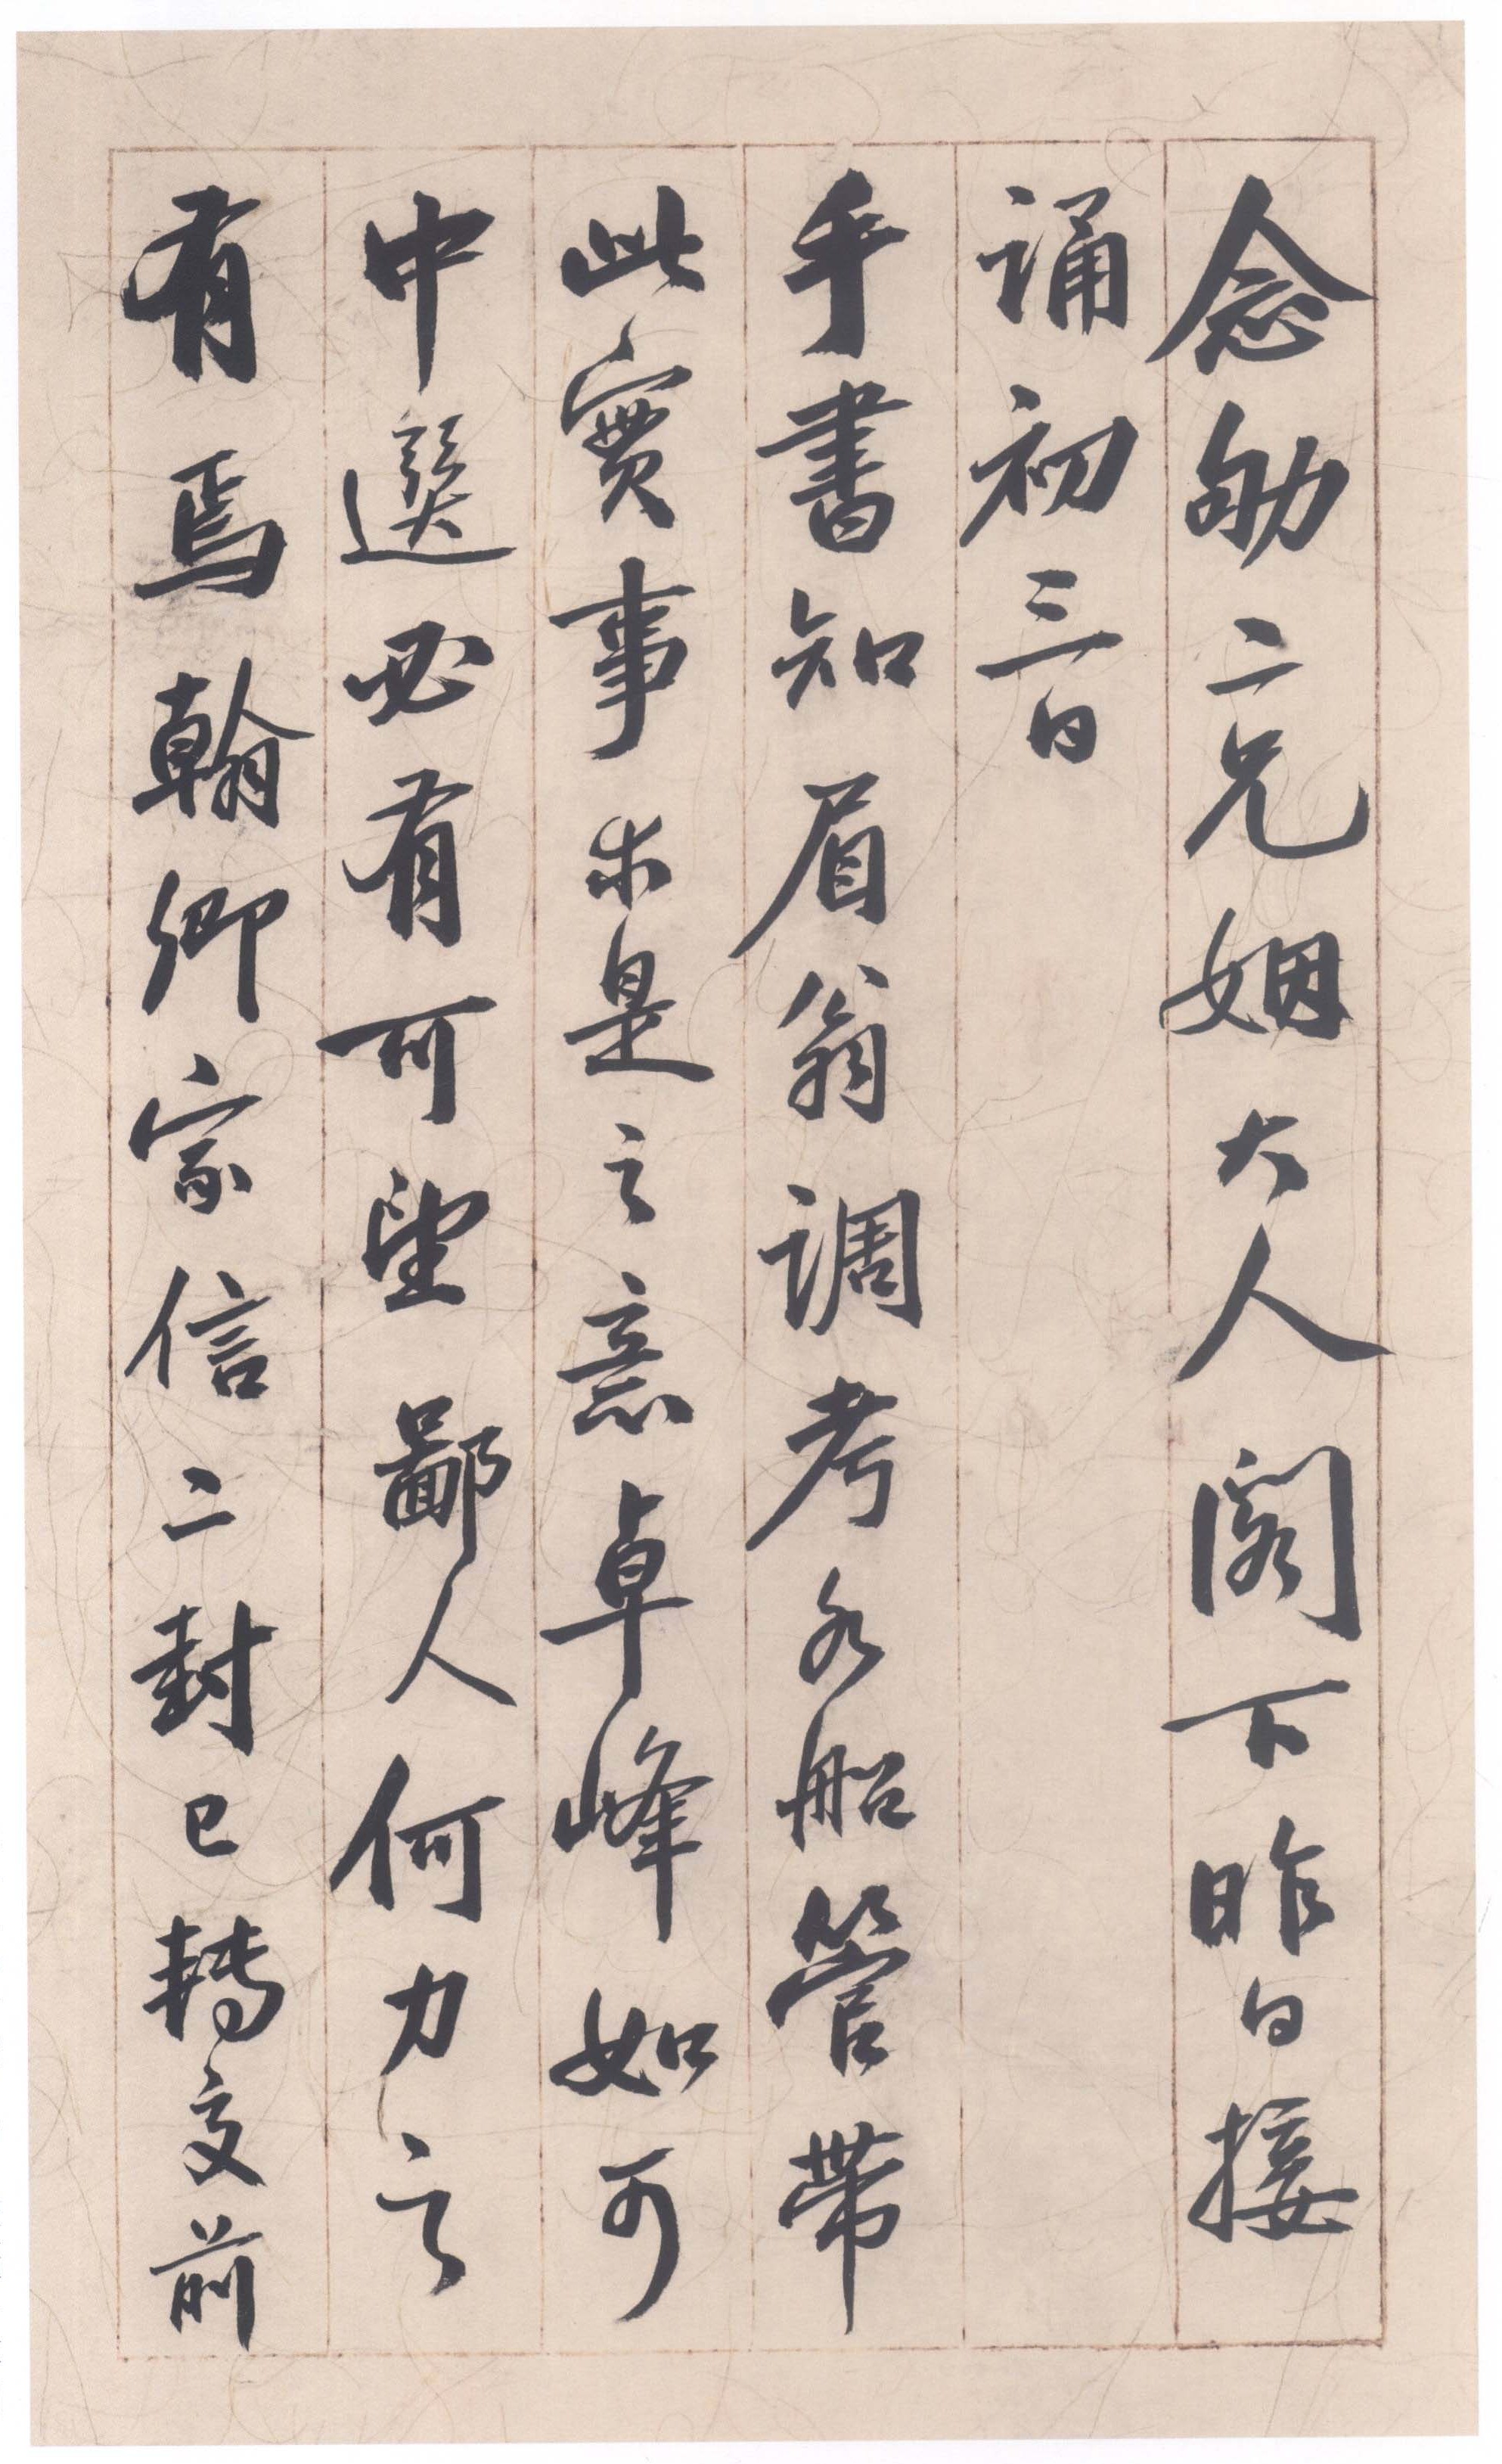 念劬二兄姻大人閣下昨日接
誦初三日
手書知眉翁調考水船管帶
此實事求是之意卓峰如可
中選必有可望鄙人何力之
有焉翰卿家信二封已轉交前